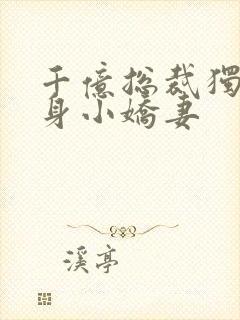 千億總裁獨
身小嬌妻
溪亭